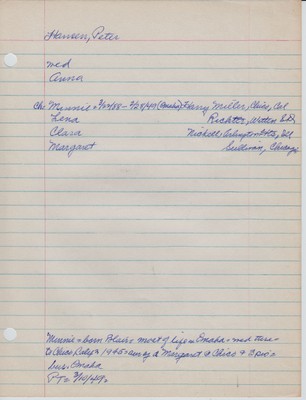 Hansen, Peter
wed
Anna
Ch: Minnie = 2/20/88 - 2/28/49 (Omaha), Harry Miles, Chico, Cal
Lena Ricketts, Wotton SD,
Clara Nickell Arlington Hts, Ill
Margaret Sullivan, Chicago
Minnie = born Blair = most of life in Omaha = wed there =
to Chico, Calif in 1945 = sur by a Margaret of Chico & 3 sis's
bur: Omaha
PT = 3/10/49 =